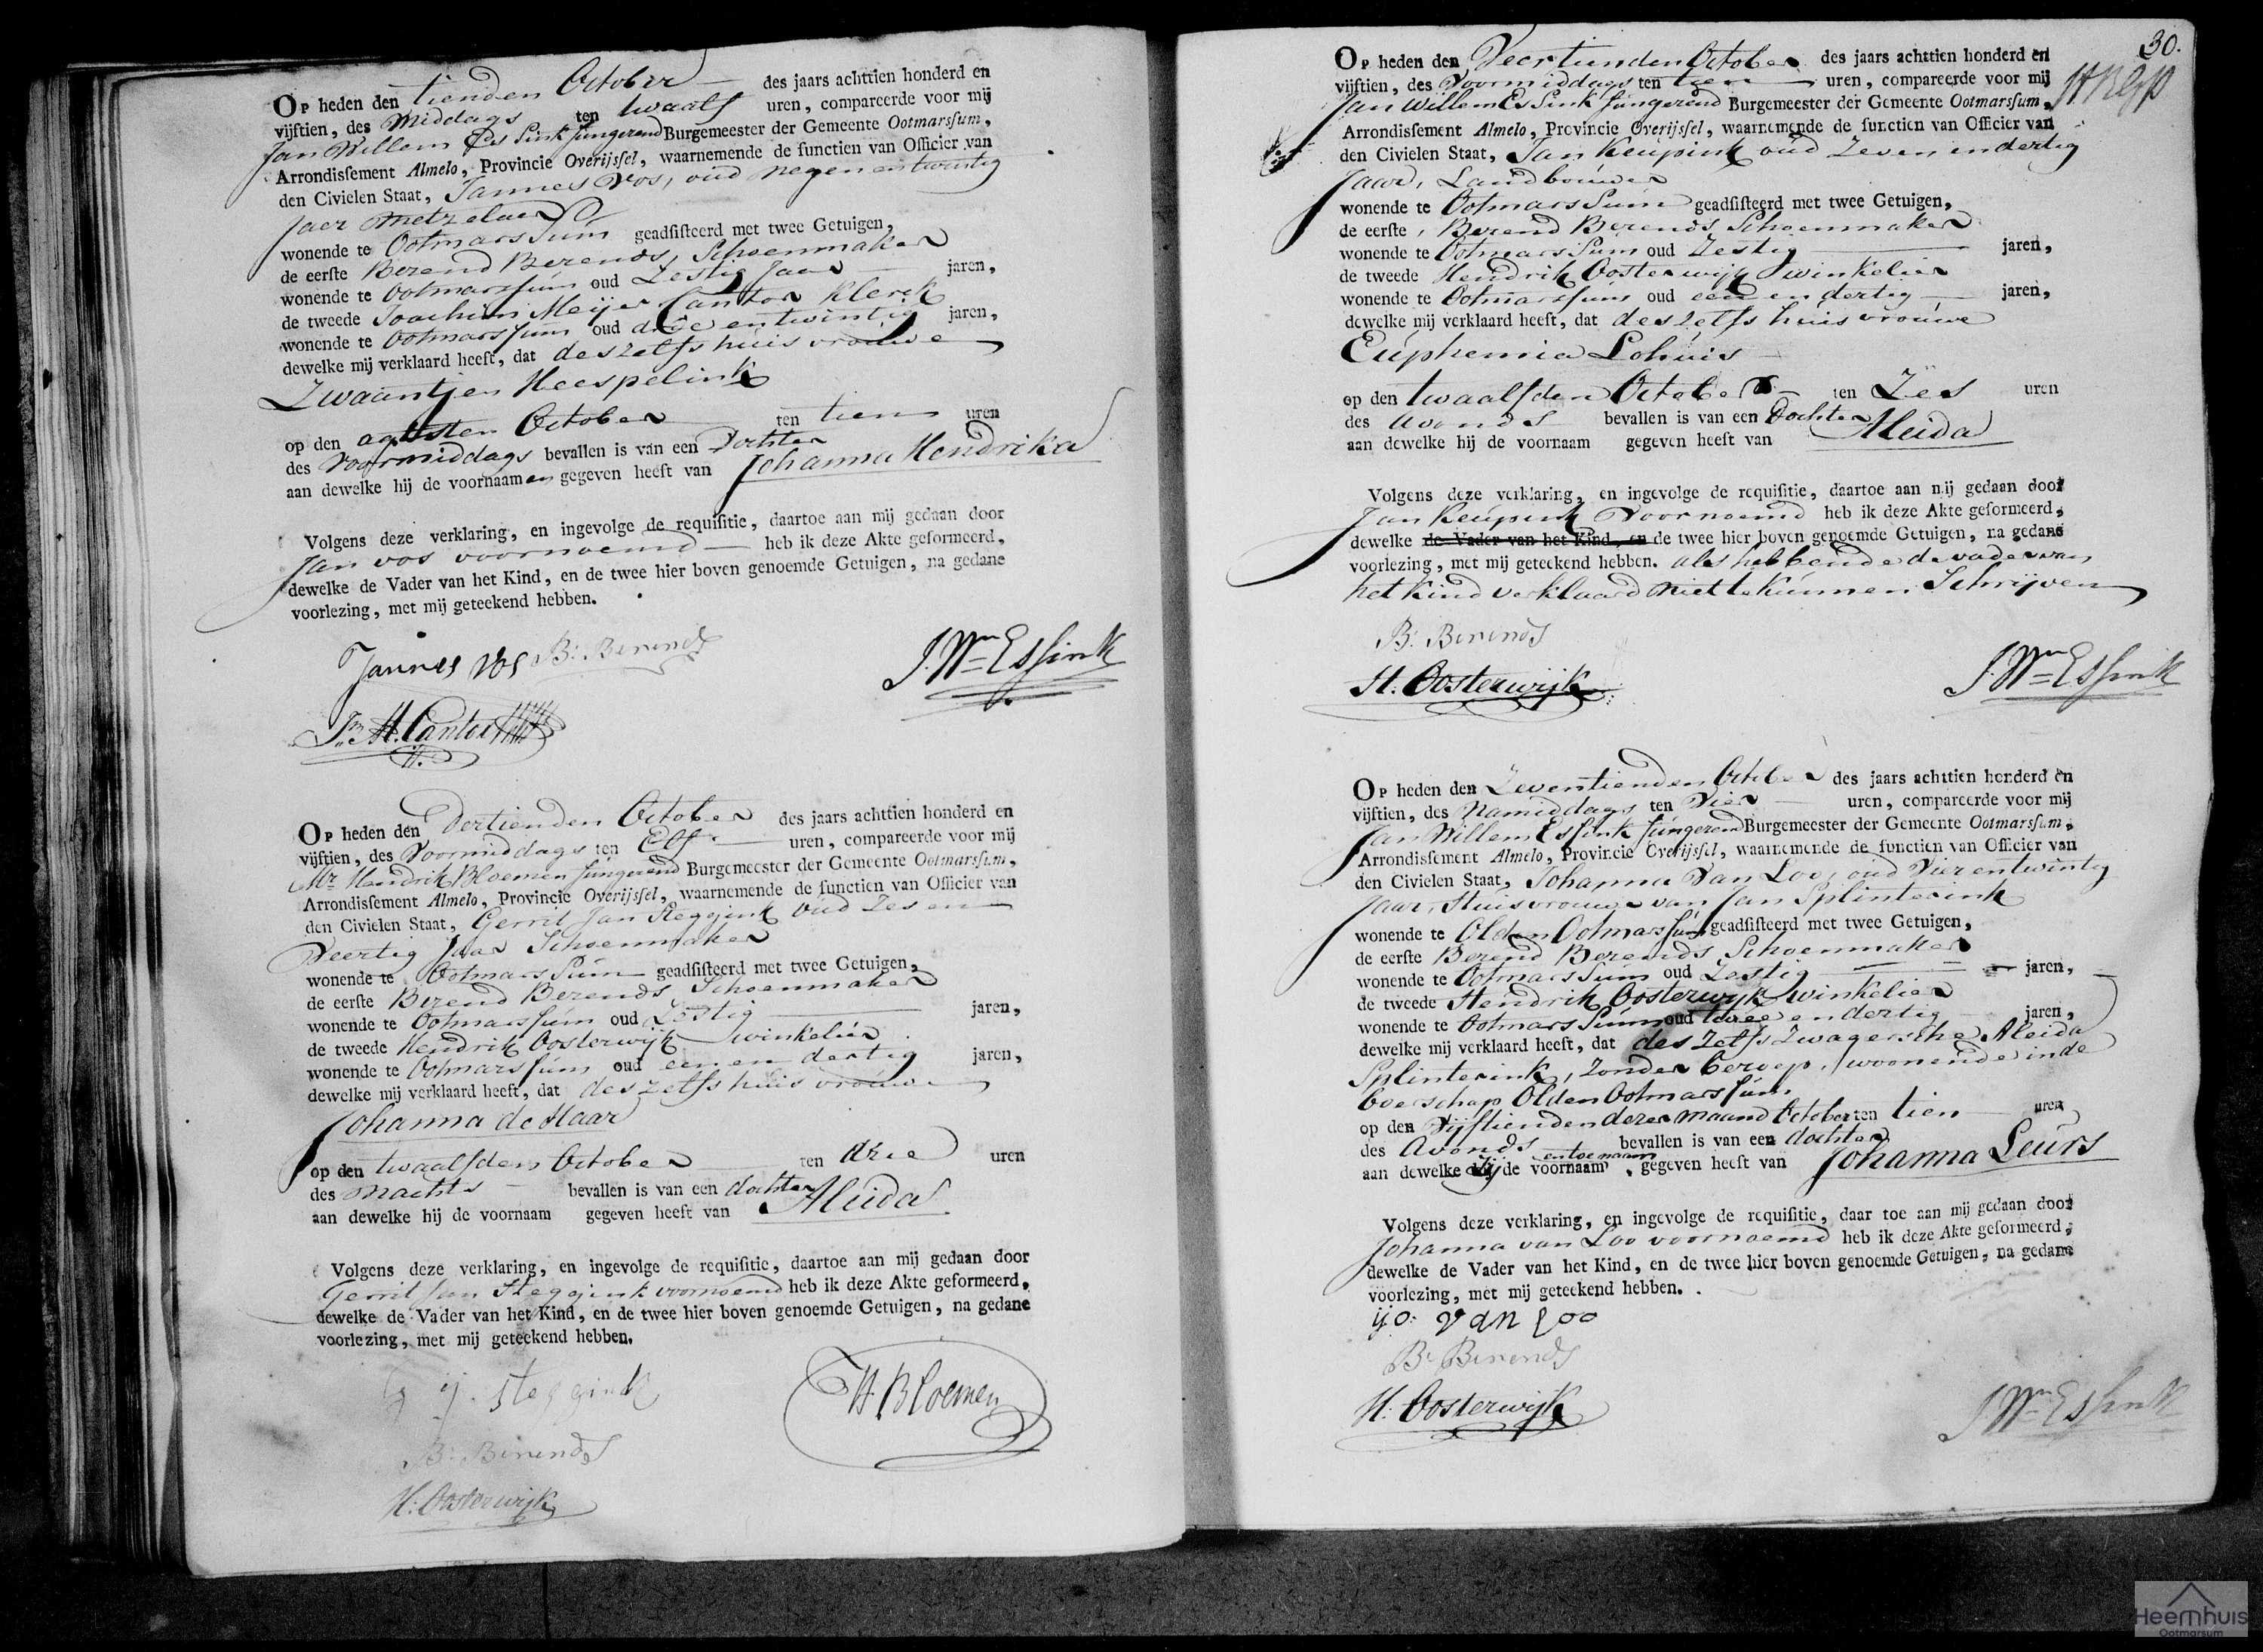 Op heden den tienden October des jaars achttien honderd en
vijftien, des Middags ten twaalf uren, compareerde voor mij
Jan Willem Essink fungerend Burgemeester der Gemeente Ootmarssum,
Arrondissement Almelo, Provincie Overijssel, waarnemende de functien van Officier van
den Civielen Staat, Jannes Vos, oud negen en twintig
Jaer Metzelaer
wonende te Ootmarssum geadsisteerd met twee Getuigen,
de eerste Berend Berends, Schoenmaker
wonende te Ootmarssum oud Zestig Jaer jaren,
de tweede Joachim Meijer Cantor Klerck
wonende te Ootmarssum oud drie en twintig jaren,
dewelke mij verklaard heeft, dat deszelfs huisvrouwe
Zwaantjen Heespelink
op den agtsten October ten tien uren
des voormiddags bevallen is van een Dochter
aan dewelke hij de voornaamen gegeven heeft van Johanna Hendrika
Volgens deze verklaring, en ingevolge de requisitie, daartoe aan mij gedaan door
Jan Vos voornoemd heb ik deze Akte geformeerd,
dewelke de Vader van het Kind, en de twee hier boven genoemde Getuigen, na gedane
voorlezing, met mij geteekend hebben.
Jannes Vos B: Berends
J. Wm Essink
Jm M. Cantor
Op heden den Dertienden October des jaars achttien honderd en
vijftien, des Voormiddags ten Elf uren, compareerde voor mij
Mr Hendrik Bloemen fungerend Burgemeester der Gemeente Ootmarssum,
Arrondissement Almelo, Provincie Overijssel, waarnemende de functien van Officier van
den Civielen Staat, Gerrit Jan Steggink oud Zes en
Veertig Jaar Schoenmaker
wonende te Ootmarssum geadsisteerd met twee Getuigen,
de eerste Berend Berends Schoenmaker
wonende te Ootmarssum oud Zestig jaren,
de tweede Hendrik Oosterwijk winkelier
wonende te Ootmarssum oud een en dertig jaren,
dewelke mij verklaard heeft, dat deszelfs huisvrouwe
Johanna de Haar
op den twaalfden October ten drie uren
des nachts bevallen is van een dochter
aan dewelke hij de voornaam gegeven heeft van Aleida
Volgens deze verklaring, en ingevolge de requisitie, daartoe aan mij gedaan door
Gerrit Jan Steggink voornoemd heb ik deze Akte geformeerd,
dewelke de Vader van het Kind, en de twee hier boven genoemde Getuigen, na gedane
voorlezing, met mij geteekend hebben.
g j. steggink
H Bloemen
B: Berends
H: Oosterwijk
30.
Op heden den Veertienden October des jaars achttien honderd en
vijftien, des Voormiddags ten tien uren, compareerde voor mij
Jan Willem Essink fungerend Burgemeester der Gemeente Ootmarssum,
Arrondissement Almelo, Provincie Overijssel, waarnemende de functien van Officier van
den Civielen Staat, Jan Keupink oud Zeven en dertig
Jaar, Landbouwer
wonende te Ootmarssum geadsisteerd met twee Getuigen,
de eerste, Berend Berends Schoenmaker
wonende te Ootmarssum oud Zestig jaren,
de tweede Hendrik Oosterwijk winkelier
wonende te Ootmarssum oud een en dertig jaren,
dewelke mij verklaard heeft, dat deszelfs huisvrouwe
Euphemia Lohuis
op den twaalfden October ten Zes uren
des avonds bevallen is van een Dochter
aan dewelke hij de voornaam gegeven heeft van Aleida
Volgens deze verklaring, en ingevolge de requisitie, daartoe aan mij gedaan door
Jan Keupink voornoemd heb ik deze Akte geformeerd,
dewelke de Vader van het Kind, en de twee hier boven genoemde Getuigen, na gedane
voorlezing, met mij geteekend hebben. als hebbende de vader van
het Kind verklaard niet te kunnen Schrijven
B: Berends
H: Oosterwijk
J. Wm Essink
Op heden den Zeventienden October des jaars achttien honderd en
vijftien, des Namiddags ten Vier uren, compareerde voor mij
Jan Willem Essink fungerend Burgemeester der Gemeente Ootmarssum,
Arrondissement Almelo, Provincie Overijssel, waarnemende de functien van Officier van
den Civielen Staat, Johanna Van Loo, oud Vier en twintig
Jaar, Huisvrouwe van Jan Splinterink
wonende te Olden Ootmarssum geadsisteerd met twee Getuigen,
de eerste Berend Berends Schoenmaker
wonende te Ootmarssum oud Zestig jaren,
de tweede Hendrik Oosterwijk winkelier
wonende te Ootmarssum oud en dertig jaren,
dewelke mij verklaard heeft, dat deszelfs Zwagersche Aleida
Splinterink, Zonder beroep, woonende in de
boerschap Olden Ootmarssum
op den Vijftienden dezer maand October ten tien uren
des Avonds bevallen is van een dochter
aan dewelke zij de voornaam en toenaam gegeven heeft van Johanna Leurs
Volgens deze verklaring, en ingevolge de requisitie, daar toe aan mij gedaan door
Johanna van Loo voornoemd heb ik deze Akte geformeerd,
dewelke de Vader van het Kind, en de twee hier boven genoemde Getuigen, na gedane
voorlezing, met mij geteekend hebben.
van Loo
B: Berends
H: Oosterwijk
J Wm Essink
Heemhuis
Ootmarsum